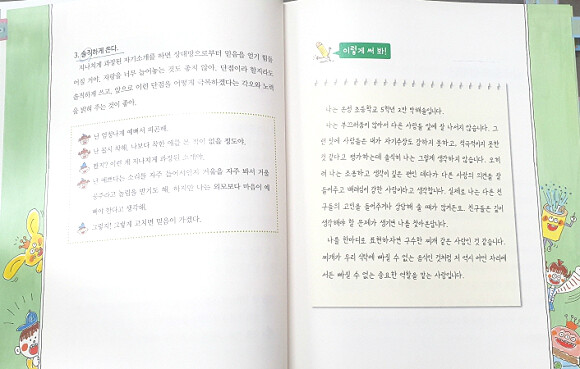 3. 솔직하게 쓴다.
지나치게 과장된 자기소개를 하면 상대방으로부터 믿음을 얻기 힘들
어질 거야. 자랑을 너무 늘어놓는 것도 좋지 않아. 단점이라 할지라도
솔직하게 쓰고, 앞으로 이런 단점을 어떻게 극복하겠다는 각오와 노력
을 밝혀 주는 것이 좋아.
난 엄청나게 예뻐서 피곤해.
난 몹시 착해. 나보다 착한 애를 본 적이 없을 정도야.
잠깐! 이런 게 지나치게 과장된 그거야.
난 예쁘다는 소리를 자주 들어서인지 거울을 자주 봐서 거울
공주라고 놀림을 받기도 해. 하지만 나는 외모보다 마음이 예
뻐야 한다고 생각해.
그렇지! 그렇게 고치면 믿음이 가겠다.
이렇게 써 봐!
나는 은성 초등학교 5학년 2반
나는 부끄러움이 많아서 다른 사람들 앞에 잘 나서지 않습니다. 그
런 점에 사람들은 내가 자기주장도 강하지 못하고, 적극적이지 못한
것 같다고 평가하는데 솔직히 나는 그렇게 생각하지 않습니다. 오히
려 나는 소통하고 생각이 깊은 편인 데다가 다른 사람의 의견을 잘
들어주고 배려심이 강한 사람이라고 생각합니다. 실제로 나는 다른 친
구들의 고민을 들어주거나 상담해 줄 때가 많거든요. 친구들은 깊이
생각해야 할 문제가 생기면 나를 찾아온답니다.
나를 한마디로 표현하자면 구수한 찌개 같은 사람인 것 같습니다.
찌개가 우리 식탁에 빠질 수 없는 음식인 것처럼 저 역시 어떤 자리에
서든 빠질 수 없는 중요한 역할을 맡는 사람입니다.